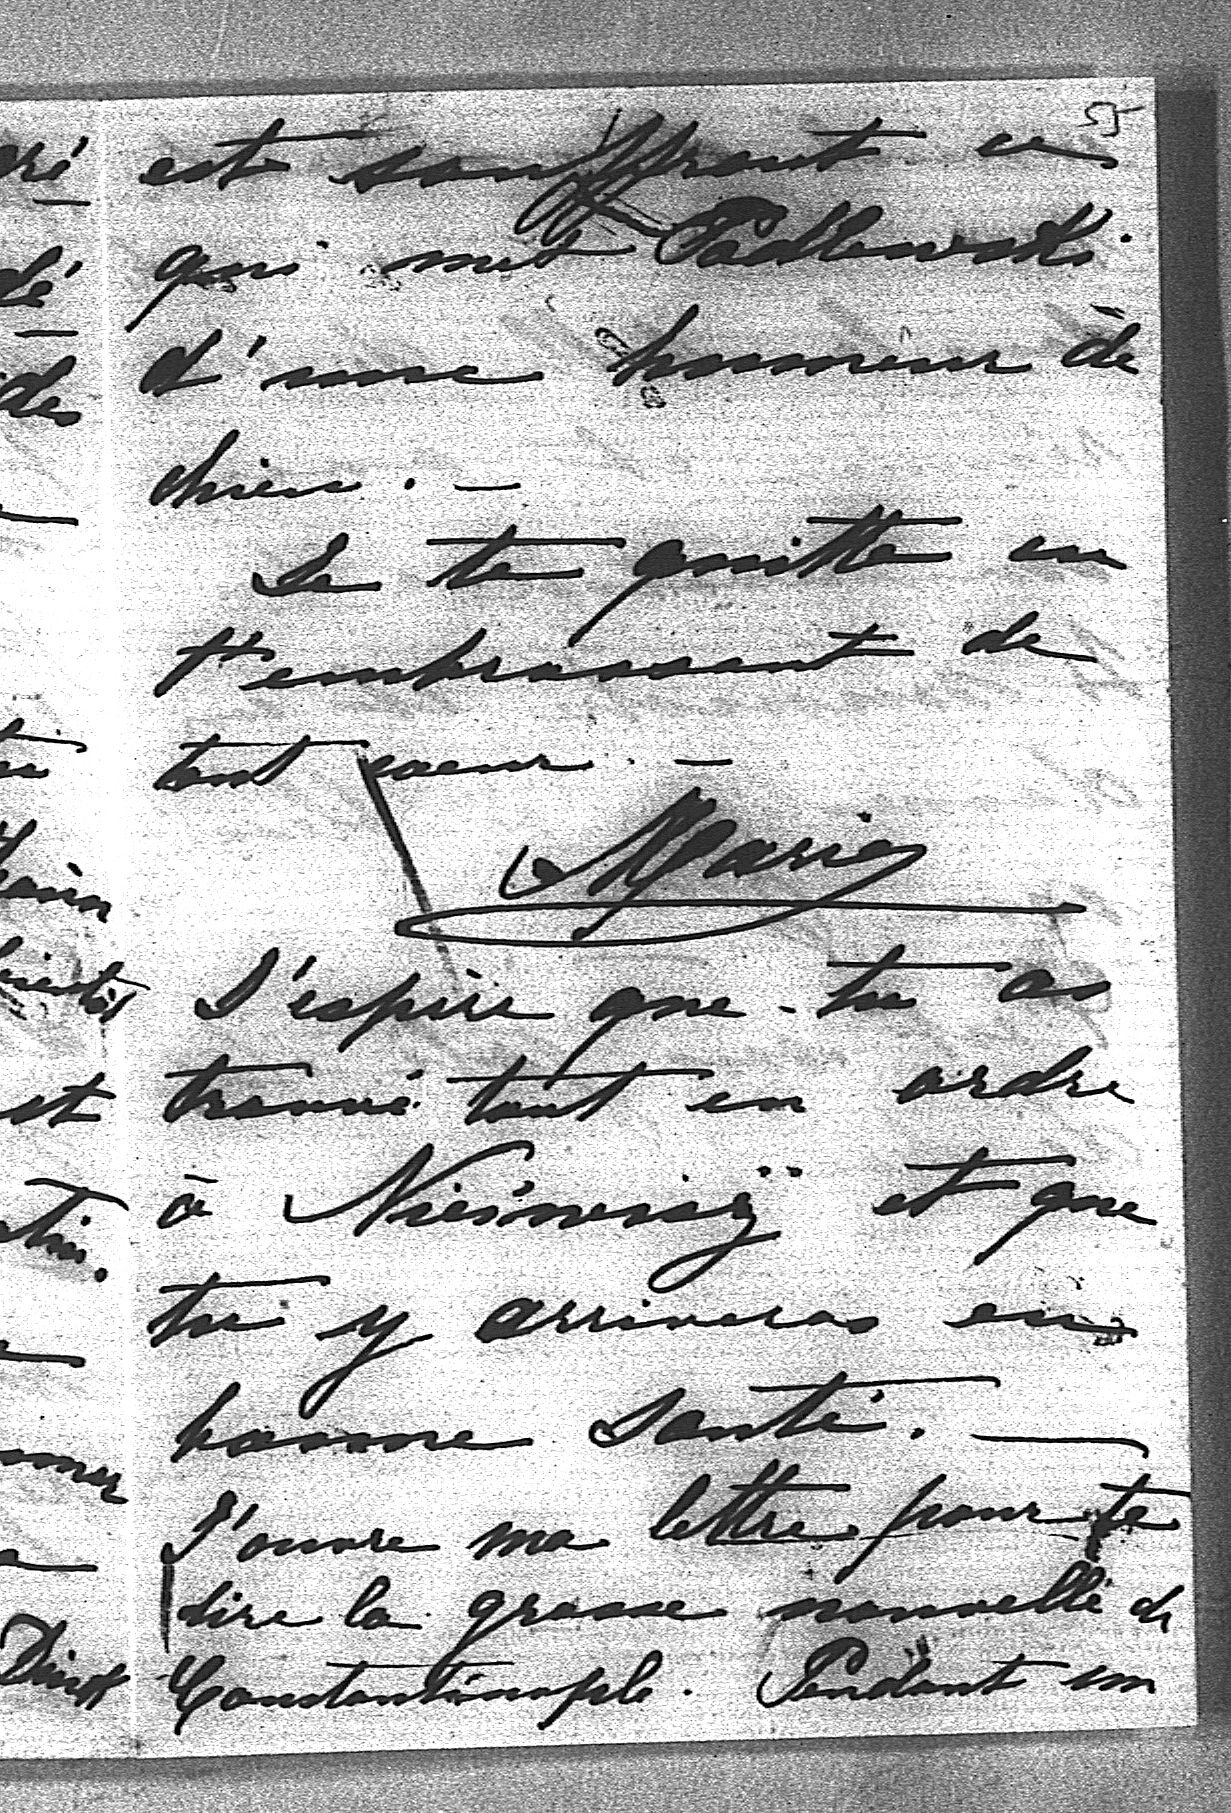 5
est souffrant ce
qui met Padlewski
d'une humeur de
chien. —
Je te quitte en
t'embrassant de
tout coeur. —
Marie
J'espère que tu as
trouvé tout en ordre
à et que
tu y arriveras en
bonne santé. —
J'ouvre ma lettre pour te
dire la grosse nouvelle de
Constantinople. Pendant un